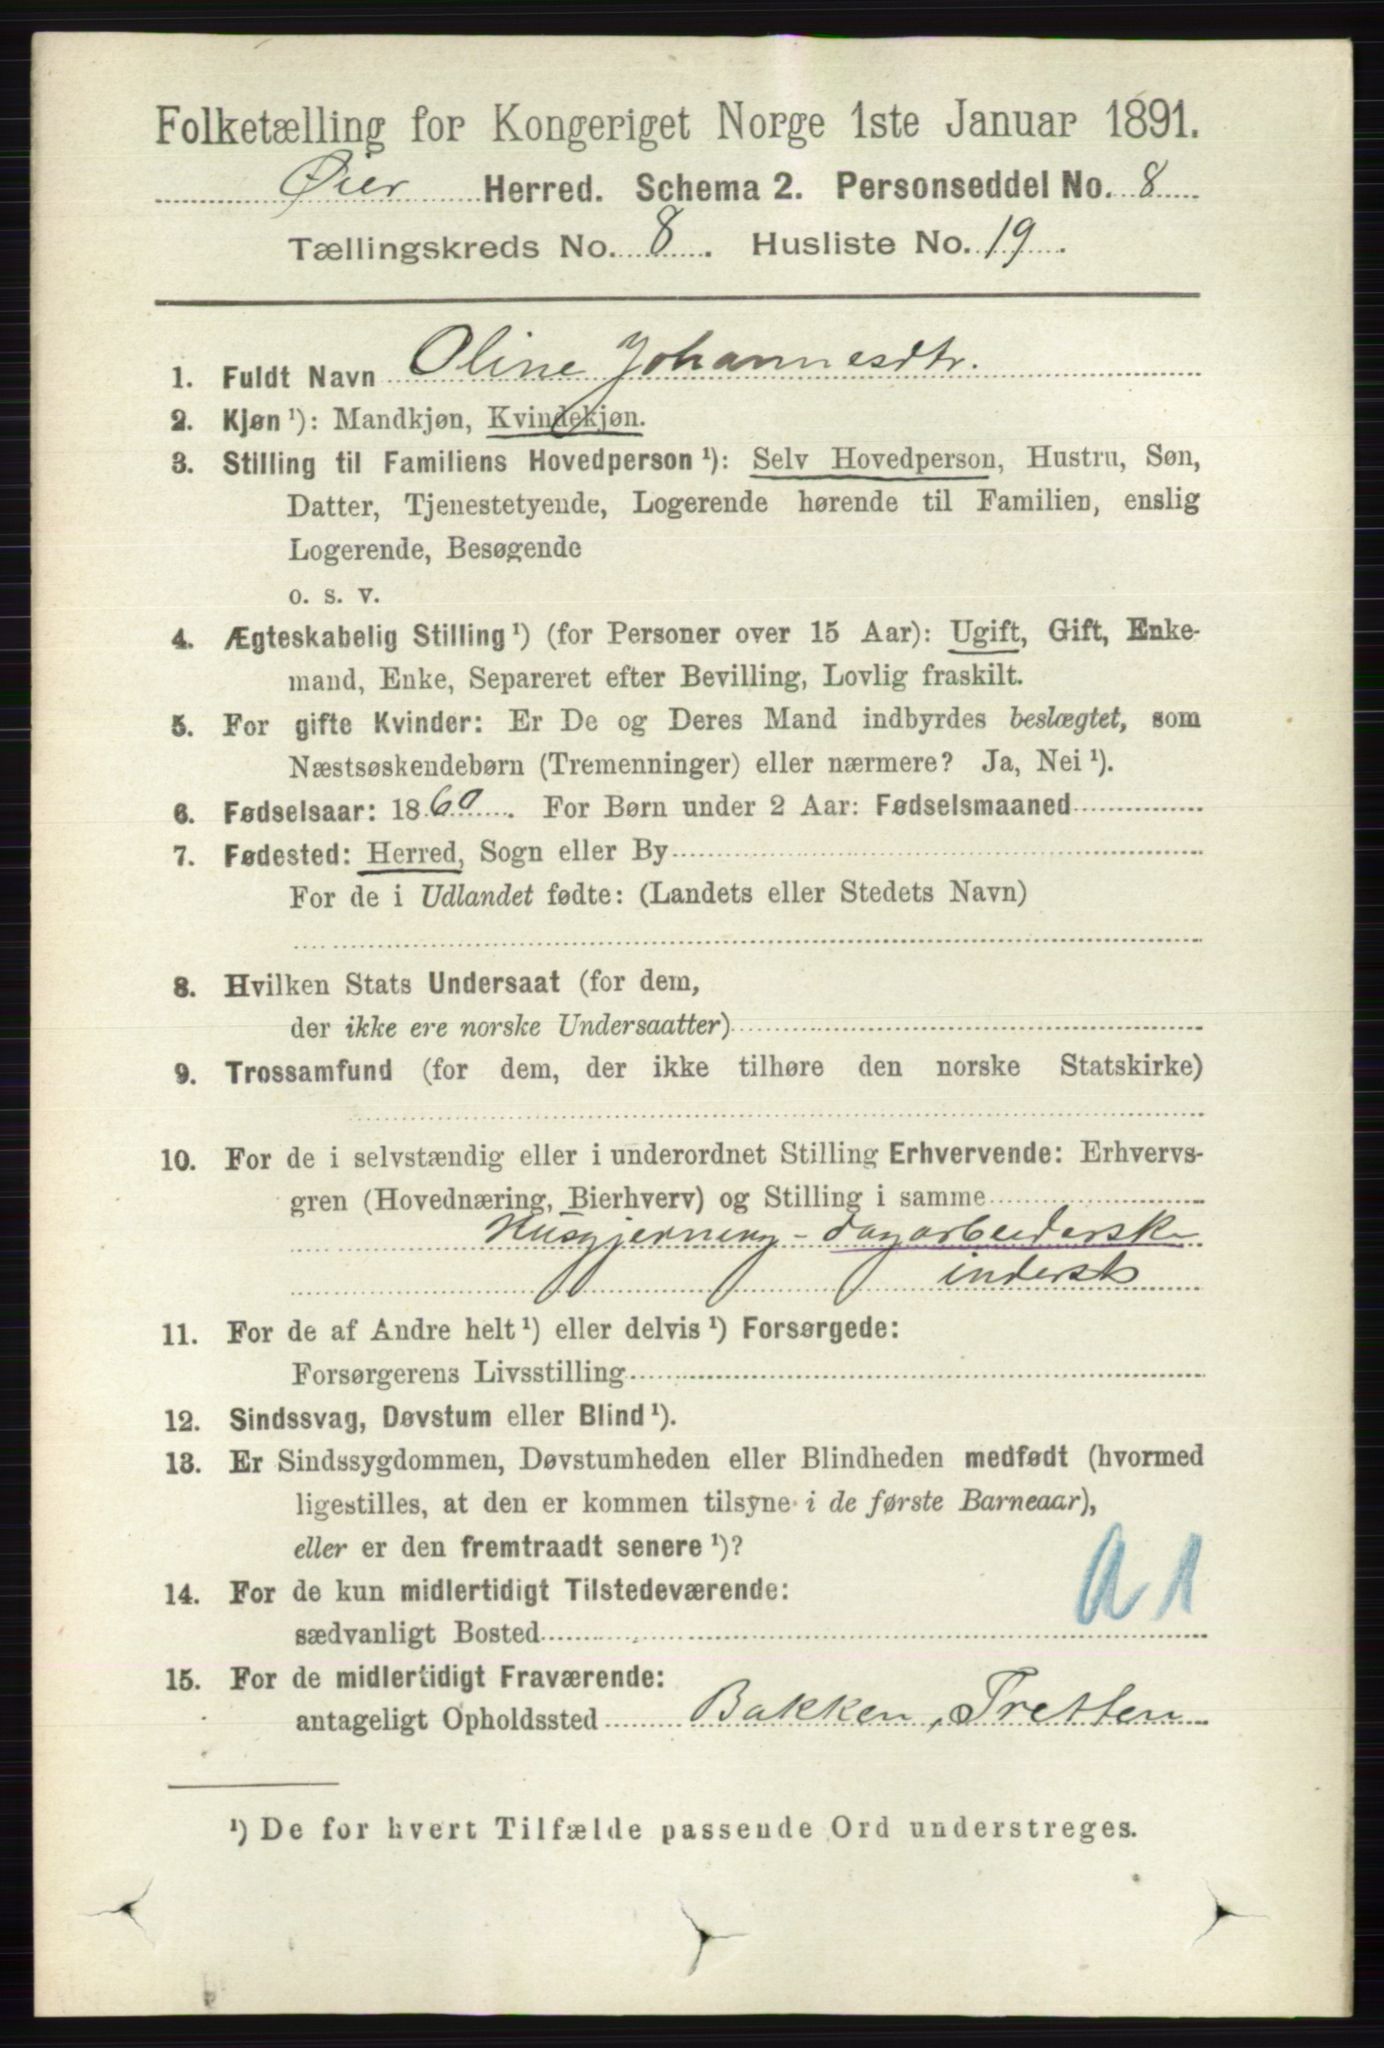 Folketælling for Kongeriget Norge 1ste Januar 1891.
Øier Herred. Schema 2. Personseddel No. 8
Tællingskreds No. 8. Husliste No. 19.
1. Fuldt Navn Oline Johannesdtr.
2. Kjøn¹): Mandkjøn, Kvindekjøn.
3. Stilling til Familiens Hovedperson¹): Selv Hovedperson, Hustru, Søn,
Datter, Tjenestetyende, Logerende hørende til Familien, enslig
Logerende, Besøgende
o. s. v.
4. Ægteskabelig Stilling¹) (for Personer over 15 Aar): Ugift, Gift, Enke-
mand, Enke, Separeret efter Bevilling, Lovlig fraskilt.
5. For gifte Kvinder: Er De og Deres Mand indbyrdes beslægtet, som
Næstsøskendebørn (Tremenninger) eller nærmere? Ja, Nei¹).
6. Fødselsaar: 1860. For Børn under 2 Aar: Fødselsmaaned
7. Fødested: Herred, Sogn eller By
For de i Udlandet fødte: (Landets eller Stedets Navn)
8. Hvilken Stats Undersaat (for dem,
der ikke ere norske Undersaatter)
9. Trossamfund (for dem, der ikke tilhøre den norske Statskirke)
10. For de i selvstændig eller i underordnet Stilling Erhvervende: Erhvervs-
gren (Hovednæring, Bierhverv) og Stilling i samme
Husgjerning - dagarbeiderske
inderst
11. For de af Andre helt¹) eller delvis¹) Forsørgede:
Forsørgerens Livsstilling
12. Sindssvag, Døvstum eller Blind¹).
13. Er Sindssygdommen, Døvstumheden eller Blindheden medfødt (hvormed
ligestilles, at den er kommen tilsyne i de første Barneaar),
eller er den fremtraadt senere¹)?
a 1
14. For de kun midlertidigt Tilstedeværende:
sædvanligt Bosted
15. For de midlertidigt Fraværende:
antageligt Opholdssted Bakken, Tretten
¹) De for hvert Tilfælde passende Ord understreges.